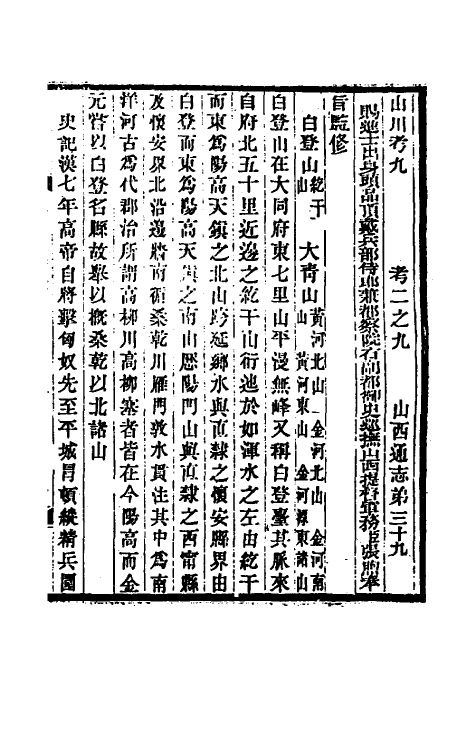 山川考九　考二之九　山西通志第三十九
賜進士出身頭品頂戴兵部侍郎兼都察院右副都御史巡撫山西提督軍務臣張煦奉
旨監修
白登山 紇干山　大青山 黃河北山 黃河東山 金河北山 金河源東諸山 金河南山
白登山在大同府東七里山平漫無峰又稱白登臺其脈來
自府北五十里近邊之紇干山衍迤於如渾水之左由紇干
而東爲陽高天鎮之北山跨延鄉水與直隸之懷安縣界由
白登而東爲陽高天鎮之南山歷陽門山與直隸之西甯縣
及懷安界北沿邊牆南循桑乾川雁門敦水貫注其中爲南
洋河古爲代郡治所謂高柳川高柳塞者皆在今陽高而金
元皆以白登名縣故舉以概桑乾以北諸山
史記漢七年高帝自將擊匈奴先至平城冒頓縱精兵圍